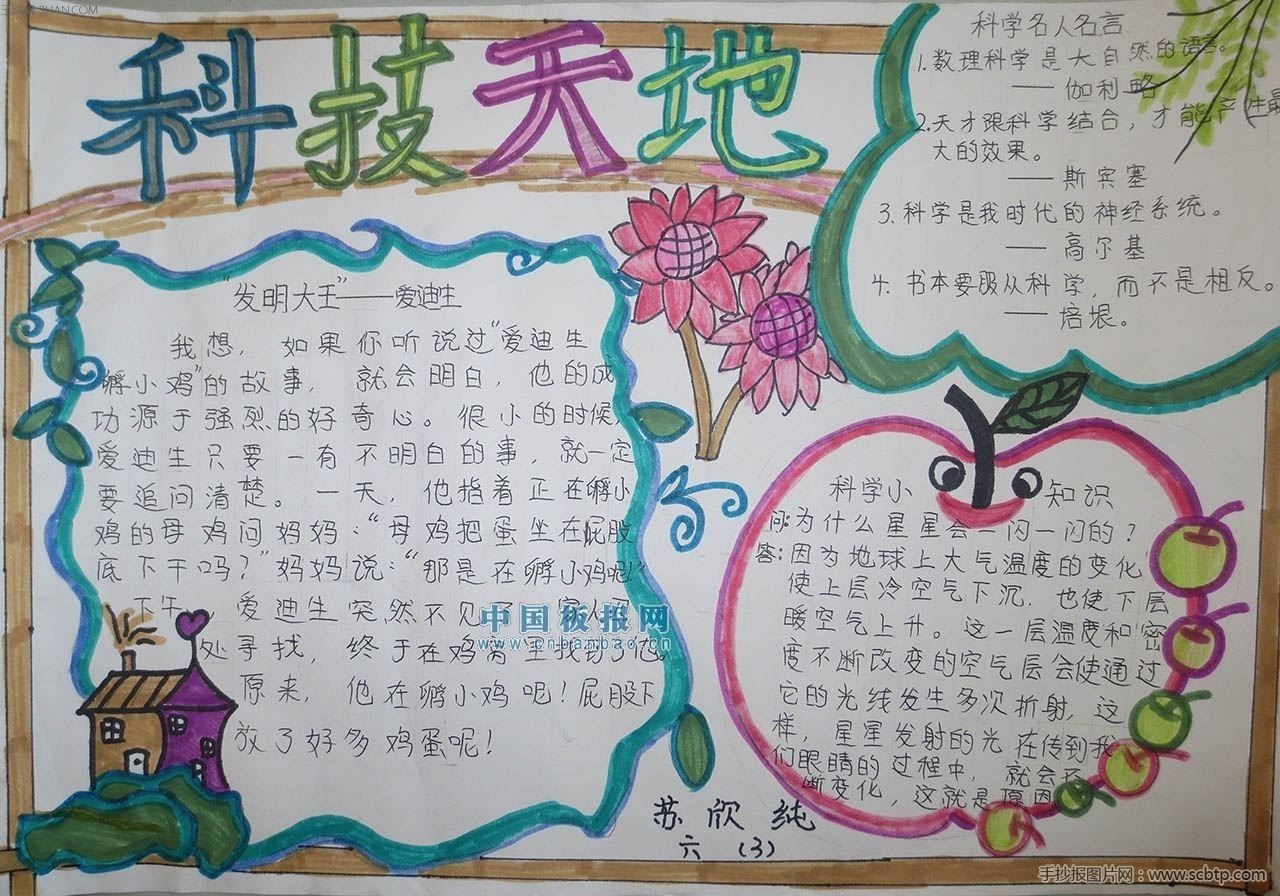 科技天地
科学名人名言
1.数理科学是大自然的语言。
——伽利略
2.天才跟科学结合，才能产生最
大的效果。
——斯宾塞
3.科学是我时代的神经系统。
——高尔基
4.书本要服从科学，而不是相反。
——培根。
“发明大王”——爱迪生
我想，如果你听说过“爱迪生
孵小鸡”的故事，就会明白，他的成
功源于强烈的好奇心。很小的时候，
爱迪生只要一有不明白的事，就一定
要追问清楚。一天，他指着正在孵小
鸡的母鸡问妈妈：“母鸡把蛋坐在屁股
底下干吗？”妈妈说：“那是在孵小鸡呢！”
下午，爱迪生突然不见了，家人
处寻找，终于在鸡窝里找到了他。
原来，他在孵小鸡呢！屁股下
放了好多鸡蛋呢！
中国板报网
www.cnbanbao.cn
科学小知识
问：为什么星星会一闪一闪的？
答：因为地球上大气温度的变化
使上层冷空气下沉，也使下层
暖空气上升。这一层温度和密
度不断改变的空气层会使通过
它的光线发生多次折射，这
样，星星发射的光在传到我
们眼睛的过程中，就会不
断变化，这就是原因
苏欣纯
六（3）
手抄报图片网：www.scbtp.com